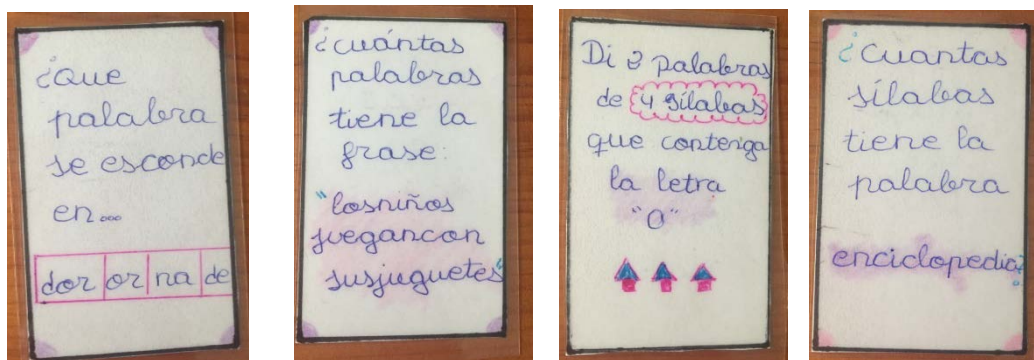 ¿Que
palabra
se esconde
en...
dor or na de
¿cuántas
palabras
tiene la
frase:
"losniños
juegancon
susjuguetes"
Di 3 palabras
de 4 sílabas
que contenga
la letra
"O"
¿Cuantas
sílabas
tiene la
palabra
enciclopedia?